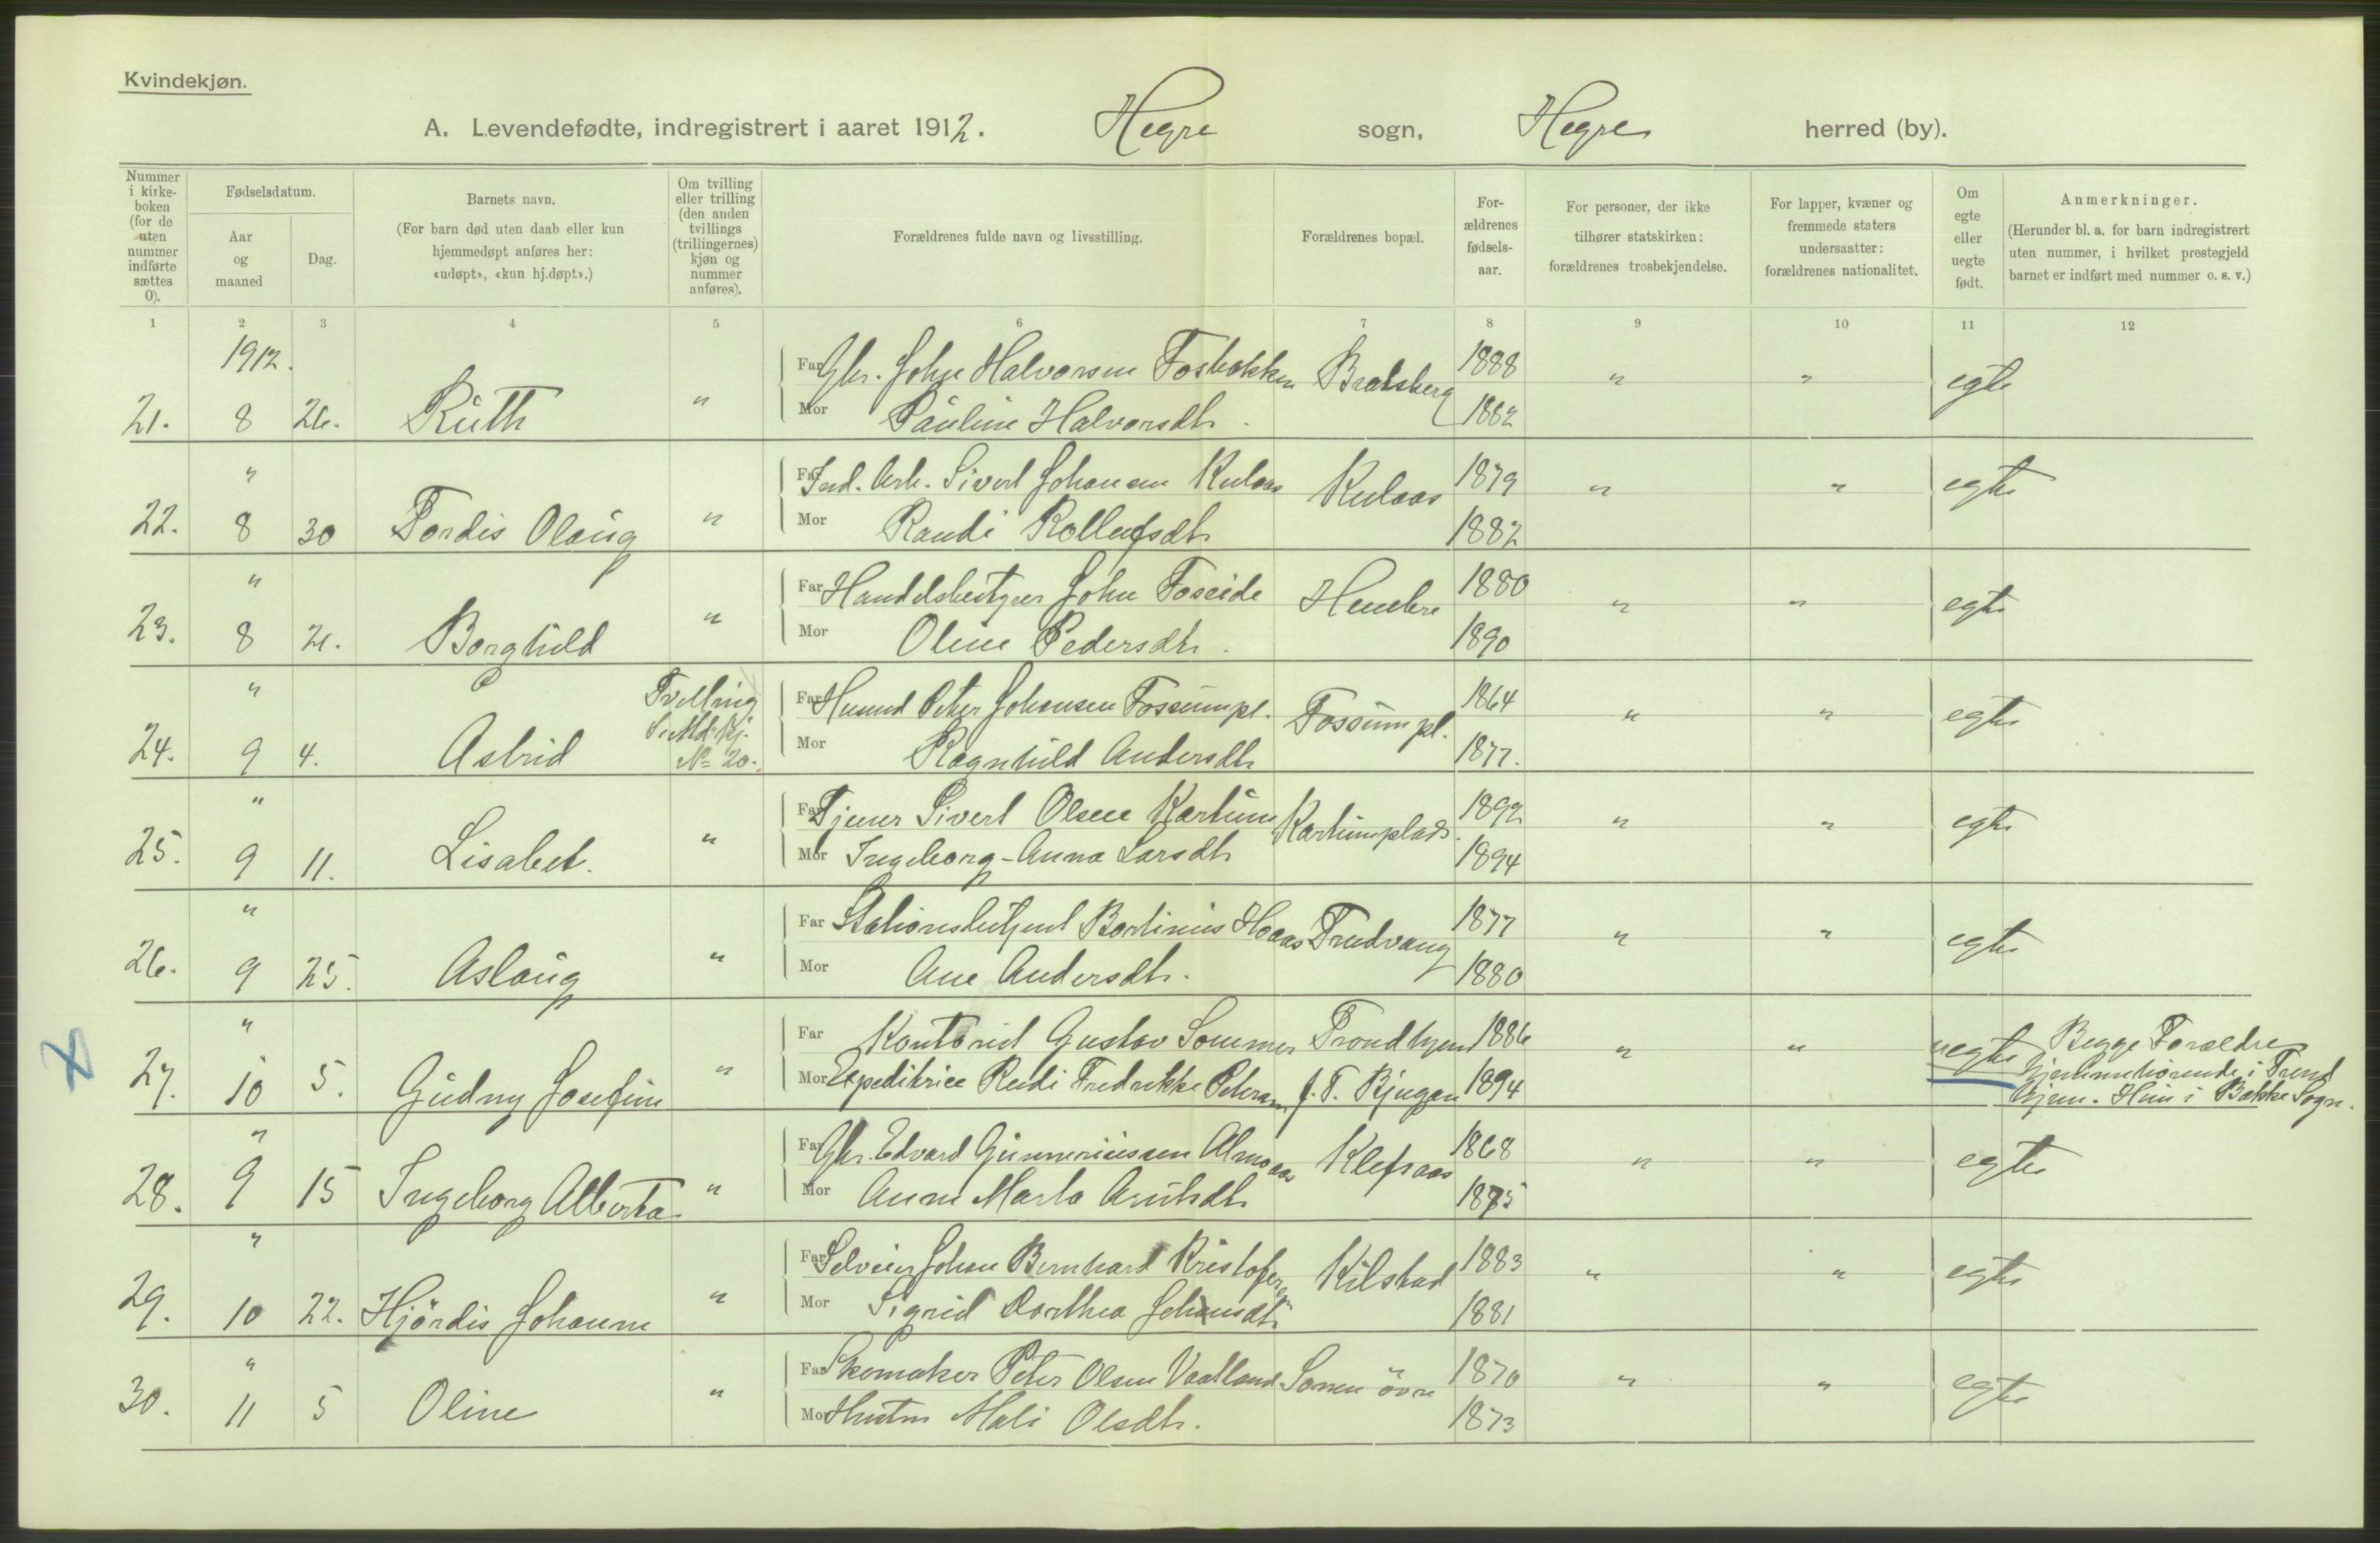 Kvindekjøn.
A. Levendefødte, indregistrert i aaret 1912. Hegre sogn, Hegre herred (by).
Nummer i kirke-boken (for de uten nummer indførte sættes 0).
Fødselsdatum.
Aar og maaned
Dag.
Barnets navn.
(For barn død uten daab eller kun hjemmedøpt anføres her: «udøpt», «kun hj.døpt».)
Om tvilling eller trilling (den anden tvillings (trillingernes) kjøn og nummer anføres).
Forældrenes fulde navn og livsstilling.
Forældrenes bopæl.
For-ældrenes fødsels-aar.
For personer, der ikke tilhører statskirken: forældrenes trosbekjendelse.
For lapper, kvæner og fremmede staters undersaatter: forældrenes nationalitet.
Om egte eller uegte født.
Anmerkninger.
(Herunder bl. a. for barn indregistrert uten nummer, i hvilket prestegjeld barnet er indført med nummer o. s. v.)
1 2 3 4 5 6 7 8 9 10 11 12
1912.
Far Gbr. John Halvorsen Fosbakken Bratsberg 1888 " " egte
21. 8 26. Ruth " Mor Pauline Halvorsdtr. 1882
" Far Ind. Arb. Sivert Johansen Kulaas Kulaas 1879 " " egte
22. 8 30 Tordis Olaug " Mor Randi Rollefsdtr 1882
" Far Handelsbestyrer John Foseide 1880 " " egte
23. 8 21. Borghild " Mor Oline Pedersdtr. 1890
" Tvilling Far Husmd Peter Johansen Fossumpl. Fossumpl. 1864 " " egte
24. 9 4. Astrid No 20. Mor Ragnhild Andersdtr 1877.
" Far Tjener Sivert Olsen Kartum Kartumplads. 1892 " " egte
25. 9 11. Lisabet. " Mor Ingeborg-Anna Larsdtr 1894
" Far Stationsbetjent Bortinius Hoaas Trudvang 1877 " " egte
26. 9 25. Aslaug " Mor Ane Andersdtr. 1880
" Far Kontorist Gustav Sommer Trondhjem 1886 " " uegte Begge Forældre
27. 10 5. Gudny Josefine " Mor Expeditrice Fredrikke Petersen 1894 hjemmehørende i Trond
hjem. Hun i Bakke Sogn.
" Far Gbr. Edvard Gunneriussen Almoaas Klefsaas 1868 " " egte
28. 9 15 Ingeborg Alberta " Mor Anne Marta Arntsdtr 1875
" Far Selveier Johan Bernhard Kristofersen Kilstad 1883 " " egte
29. 10 22. Hjördis Johanne " Mor Sigrid Dorthea Johansdtr 1881
" Far Skomaker Peter Olsen Sonen övre 1870 " " egte
30. 11 5 Oline " Mor Hustru Mali Olsdtr. 1873